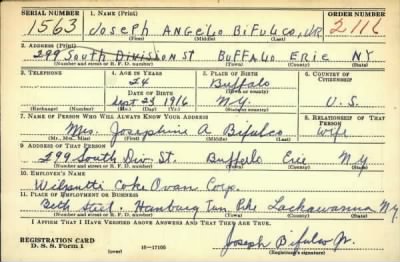 SERIAL NUMBER 1. NAME (Print) ORDER NUMBER
1563 JOSEPH ANGELO BIFULCO, JR. 2116
(First) (Middle) (Last)
2. ADDRESS (Print)
299 SOUTH DIVISION ST BUFFALO ERIE NY
(Number and street or R. F. D. number) (Town) (County) (State)
3. TELEPHONE 4. AGE IN YEARS 5. PLACE OF BIRTH 6. COUNTRY OF CITIZENSHIP
24 Buffalo
DATE OF BIRTH (Town or county)
Sept 23 1916 N.Y. U.S.
(Exchange) (Number) (Mo.) (Day) (Yr.) (State or country)
7. NAME OF PERSON WHO WILL ALWAYS KNOW YOUR ADDRESS 8. RELATIONSHIP OF THAT PERSON
Mrs. Josephine A Bifulco Wife
(Mr., Mrs., Miss) (First) (Middle) (Last)
9. ADDRESS OF THAT PERSON
299 South Div. St. Buffalo Erie N.Y
(Number and street or R. F. D. number) (Town) (County) (State)
10. EMPLOYER'S NAME
Coke Oven Corp.
11. PLACE OF EMPLOYMENT OR BUSINESS
Beth Steel. Hamburg Turn Pike Lackawanna N.Y.
(Number and street or R. F. D. number) (Town) (County) (State)
I AFFIRM THAT I HAVE VERIFIED ABOVE ANSWERS AND THAT THEY ARE TRUE.
REGISTRATION CARD
D. S. S. Form 1 (over) 16—17105 Joseph Bifulco Jr.
(Registrant's signature)